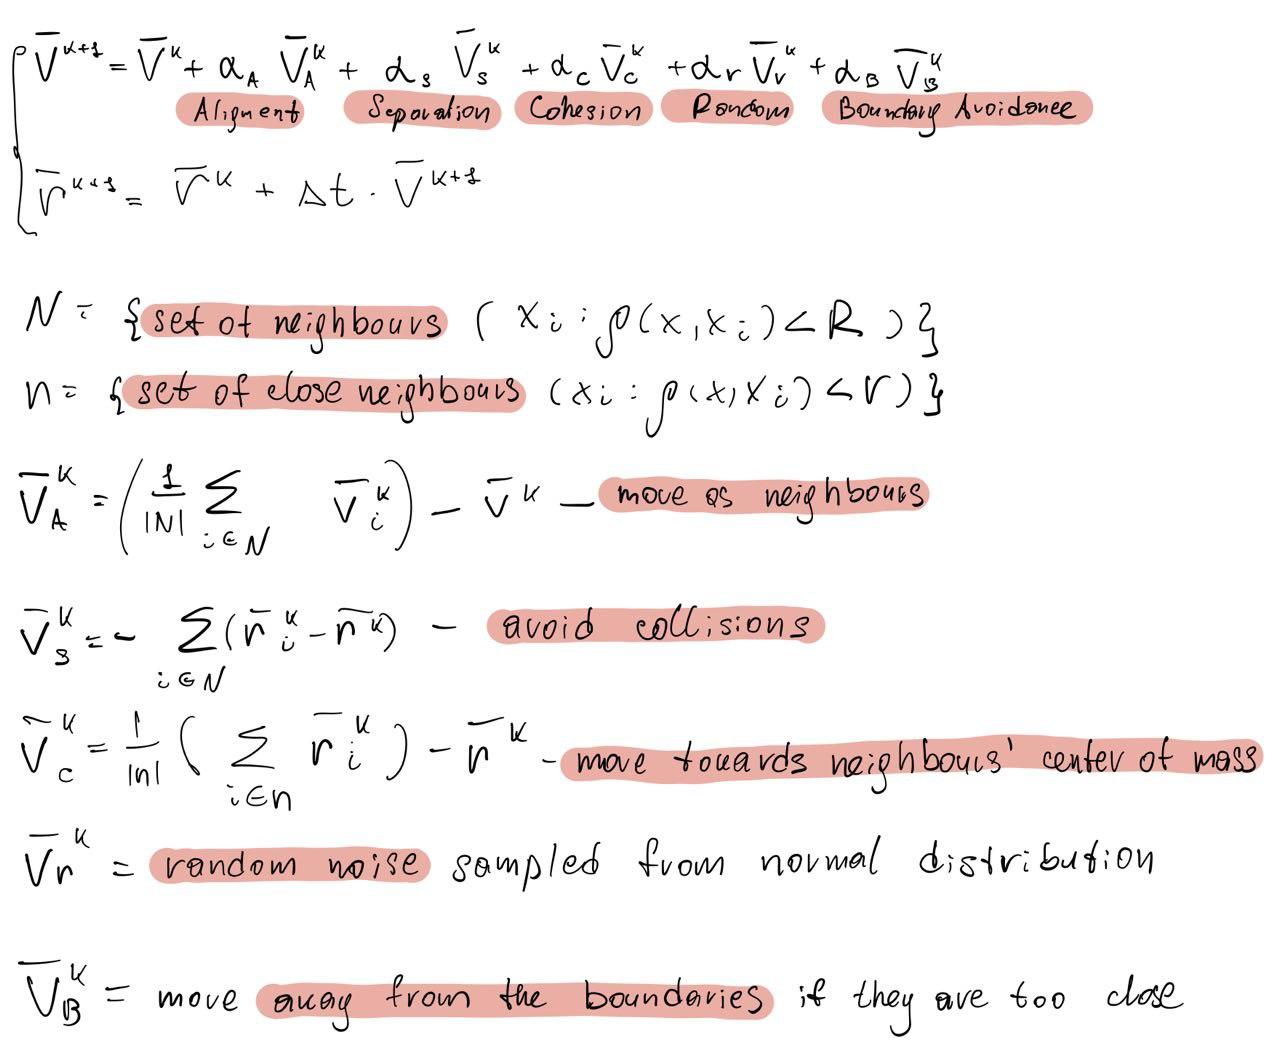 V̄ᵏ⁺¹ = V̄ᵏ + α_A V̄_Aᵏ + α_s V̄_sᵏ + α_c V̄_cᵏ + α_r V̄_rᵏ + α_B V̄_Bᵏ
Aligment Separation Cohesion Random Boundary Avoidance
r̄ᵏ⁺¹ = r̄ᵏ + Δt · V̄ᵏ⁺¹
N = {set of neighbours (x_i : ρ(x, x_i) < R)}
n = {set of close neighbours (x_i : ρ(x, x_i) < r)}
V̄_Aᵏ = (1/|N| Σ_{i∈N} V̄_iᵏ) − V̄ᵏ — move as neighbours
V̄_sᵏ = − Σ_{i∈N} (r̄_iᵏ − r̄ᵏ) — avoid collisions
V̄_cᵏ = 1/|n| (Σ_{i∈n} r̄_iᵏ) − r̄ᵏ - move towards neighbours' center of mass
V̄_rᵏ = random noise sampled from normal distribution
V̄_Bᵏ = move away from the boundaries if they are too close